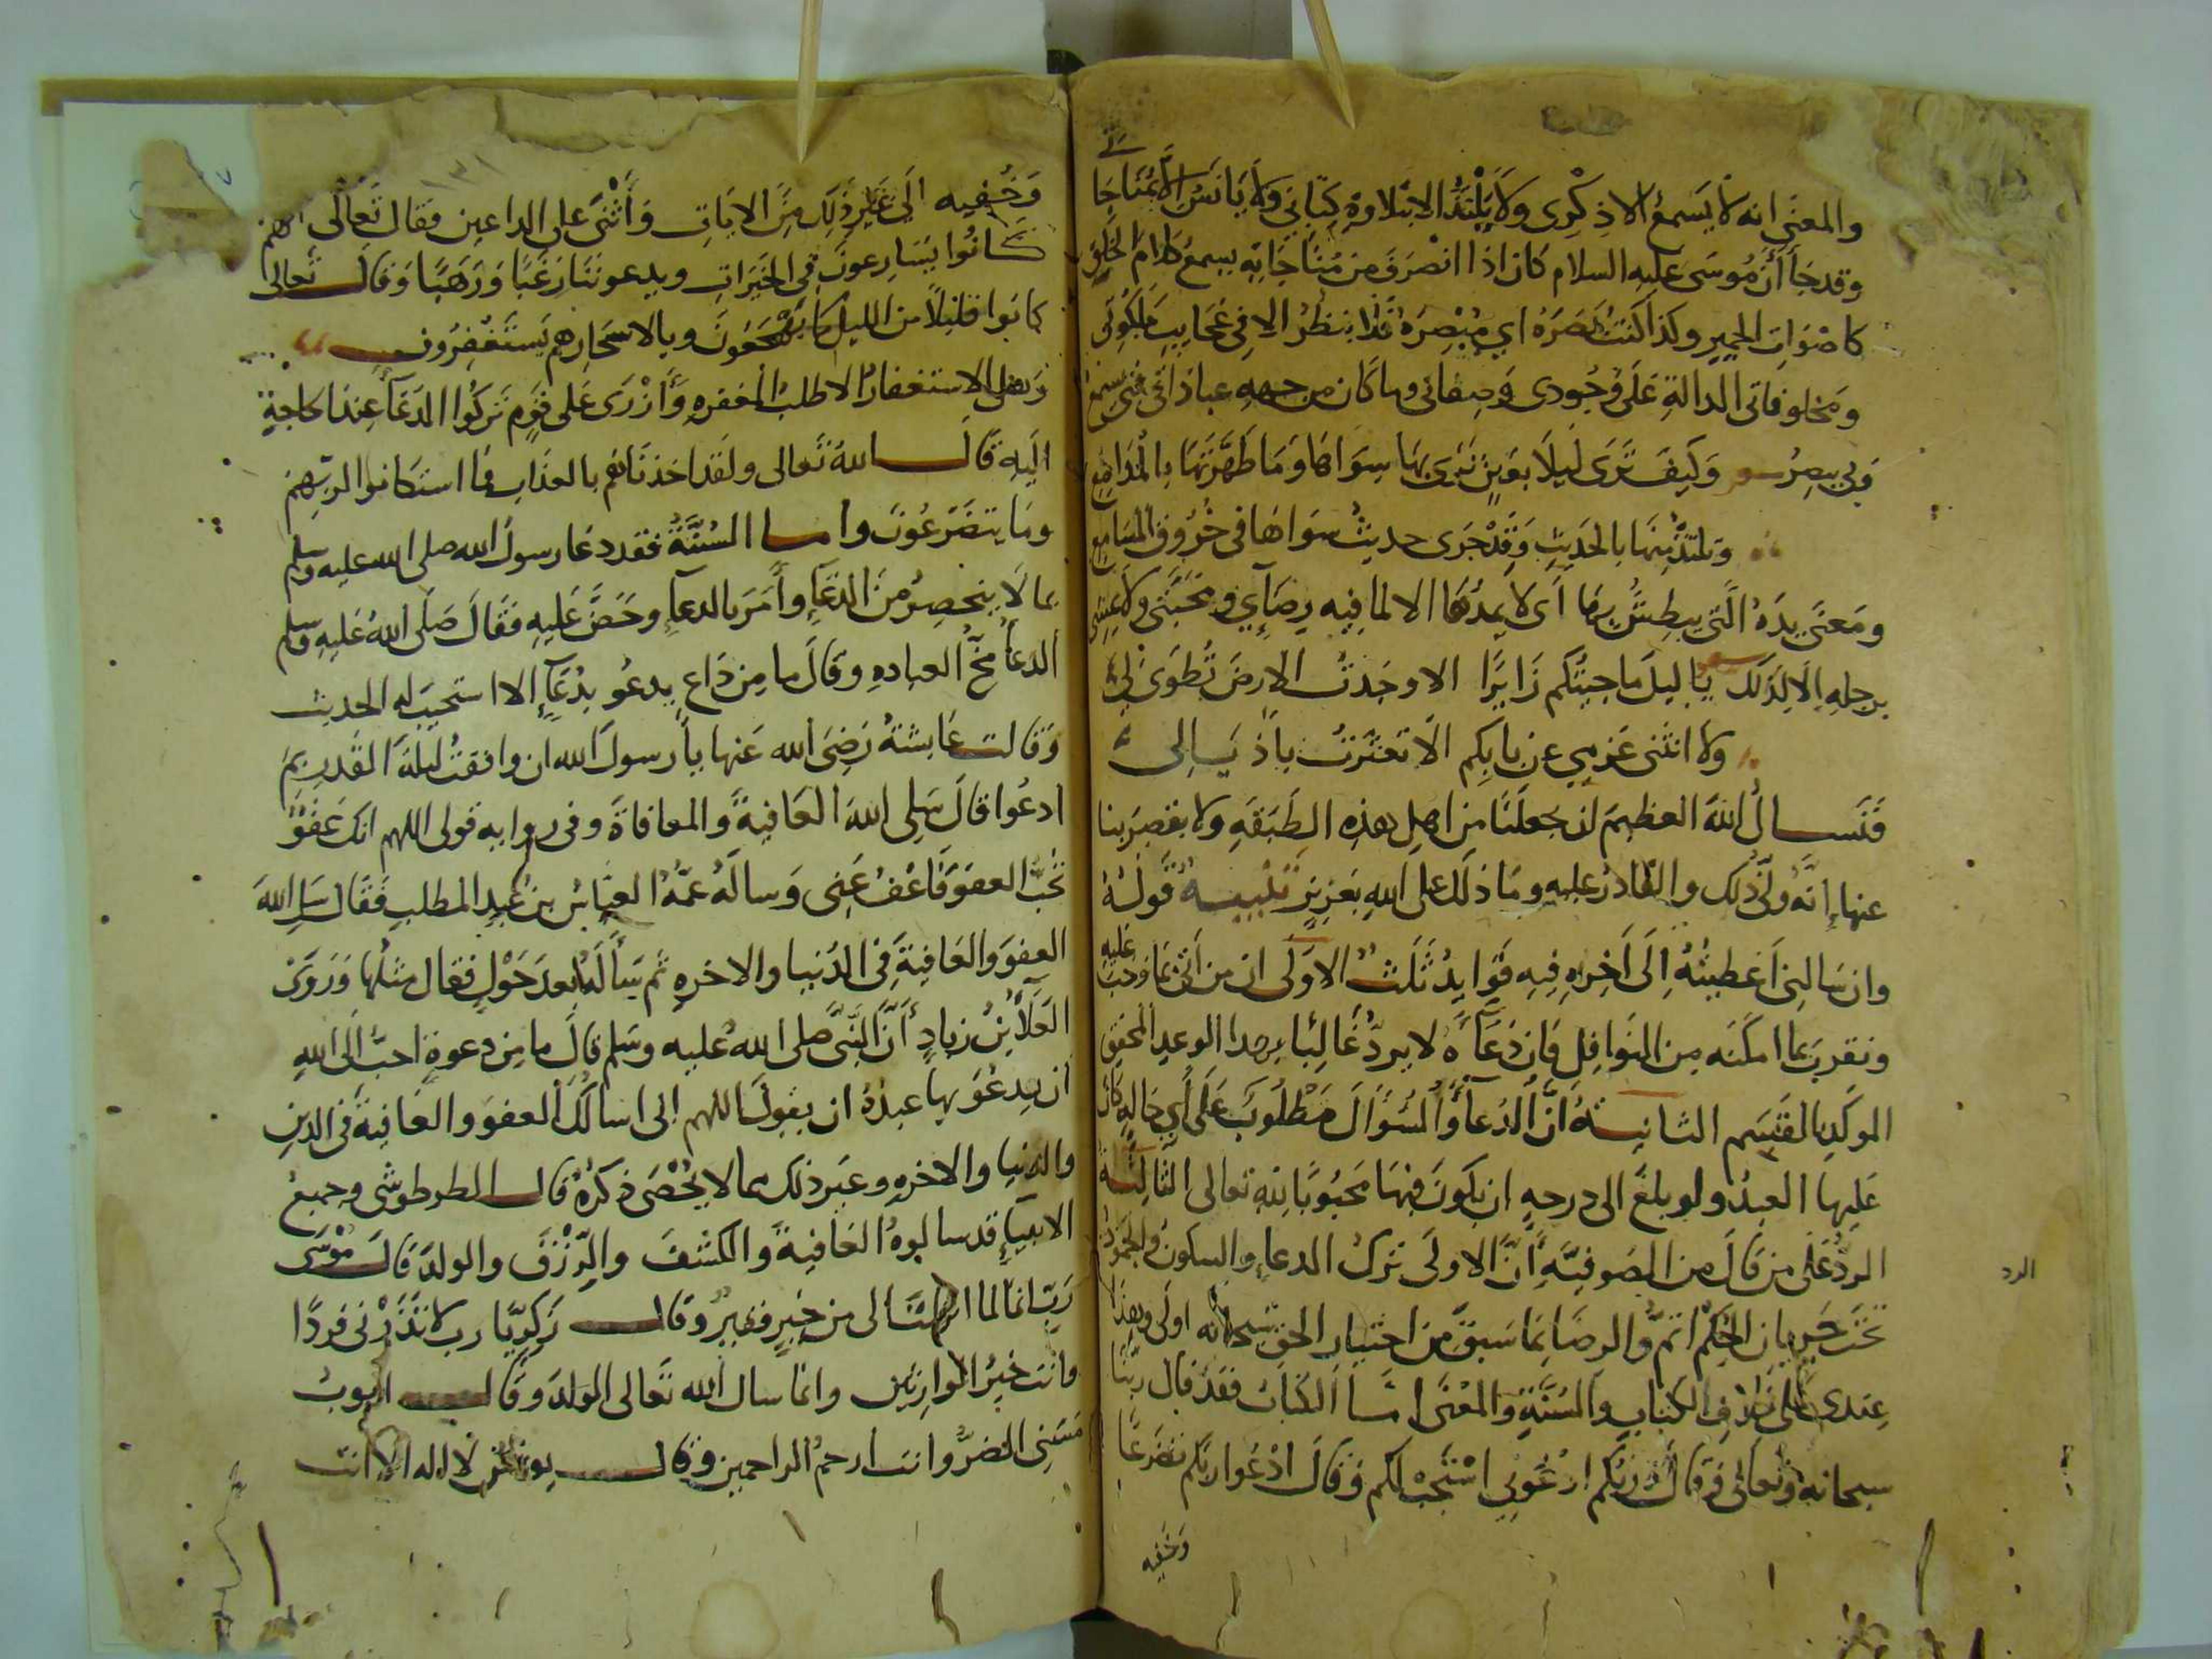 والمعنى انه لا يسمع الا ذكرى ولا يلتذ الا بتلاوة كتابي ولا يانس الا بمناجا
تي
وقد جا أن موسى عليه السلام كان اذا انصرف من مناجاته يسمع كلام الخلق
كاصوات الحمير وكذا كنت بصره اي مبصره فلا ينظر الا في عجايب ملكوتى
ومخلوقاتى الدالة على وجودى وصفاتى وما كان من جهه عباداتى فبى يسمع
وبى يبصر وكيف ترى ليلا بعين ترى بها سواها وما طهرتها بالمدامع
وتلتذ منها بالحديث وقد جرى حديث سواها في خروق المسامع
ومعنى يده التى يبطش بها اى لا يمدها الا لما فيه رضآي ومحبتى ولا يمشى
برجله إلا لذلك يا ليل ما جيتكم زايرا الا وجدت الارض تطوى لي
ولا انثنى عزمي عن بابكم الا تعثرت باذيالى
فنسال الله العظيم ان يجعلنا من اهل هذه الطبقه ولا يقصر بنا
عنها إنه ولى ذلك والقادر عليه وما ذلك على الله بعزيز تنبيه قوله
وان سالنى اعطيته إلى اخره فيه فوايد ثلث الاولى ان من اتى بما وجب عليه
وتقرب بما امكنه من النوافل فان دعآه لا يرد غالبا بهذا الوعد المحقق
الموكد بالقسم الثانية أن الدعآ والسؤال مطلوب على أي حاله كان
عليها العبد ولو بلغ الى درجه ان يكون فيها محبوبا لله تعالى الثالثة
الرد على من قال من الصوفية أن الاولى ترك الدعاء والسكون والجمود
الرد
تحت جريان الحكم اتم والرضا بما سبق من اختيار الحق سبحانه اولى وهذا
عندى على خلاف الكتاب والسنة والمعنى اما الكتاب فقد قال ربنا
سبحانه وتعالى وقال ربكم ادعوني استجب لكم وقال ادعوا ربكم تضرعا
وخفيه
١٣١
وخفيه الى غير ذلك من الايات وأثنى على الداعين فقال تعالى انهم
كانوا يسارعون في الخيرات ويدعوننا رغبا ورهبا وقال تعالى
كانوا قليلا من الليل ما يهجعون وبالاسحار هم يستغفرون
وهل الاستغفار الا طلب المغفره وأزرى على قوم تركوا الدعآ عند الحاجة
اليه قال الله تعالى ولقد اخذناهم بالعذاب فما استكانوا لربهم
وما يتضرعون واما السنة فقد دعا رسول الله صلى الله عليه وسلم
بما لا ينحصر من الدعآء وأمر بالدعآء وحض عليه فقال صلى الله عليه وسلم
الدعآ مخ العباده وقال ما من داع يدعو بدعآء إلا استجيب له الحديث
وقالت عايشة رضى الله عنها يا رسول الله ان وافقت ليلة القدر بم
ادعوا قال سلى الله العافية والمعافاة وفى روايه قولى اللهم انك عفو
تحب العفو فاعف عنى وساله عمه العباس بن عبد المطلب فقال سل الله
العفو والعافية فى الدنيا والاخره ثم سأله بعد حول فقال مثلها وروى
العلآ بن زياد أن النبى صلى الله عليه وسلم قال ما من دعوة احب الى الله
ان يدعو بها عبده ان يقول اللهم إنى اسالك العفو والعافية فى الدين
والدنيا والاخره وغير ذلك مما لا يحصى ذكره قال الطرطوشى وجميع
الانبيآء قد سالوه العافية والكشف والرزق والولد قال موسى
رب انى لما انزلت الى من خير فقير وقال زكريا رب لا تذرنى فردا
وانت خير الوارثين وانما سال الله تعالى الولد وقال ايوب
مسنى الضر وانت ارحم الراحمين وقال يونس لا اله الا انت